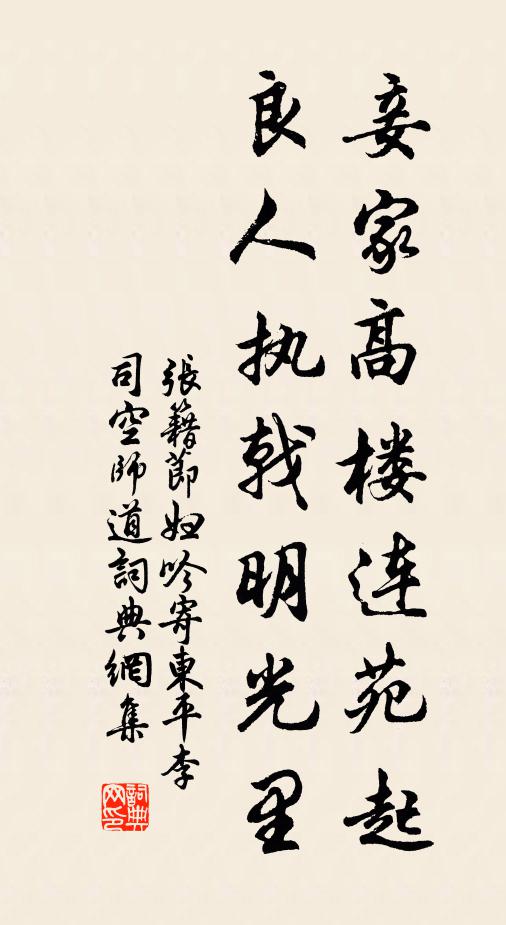 妾家高楼连苑起
良人执戟明光里
張籍節婦吟寄東平李
司空師道詞典網集
詞典网印